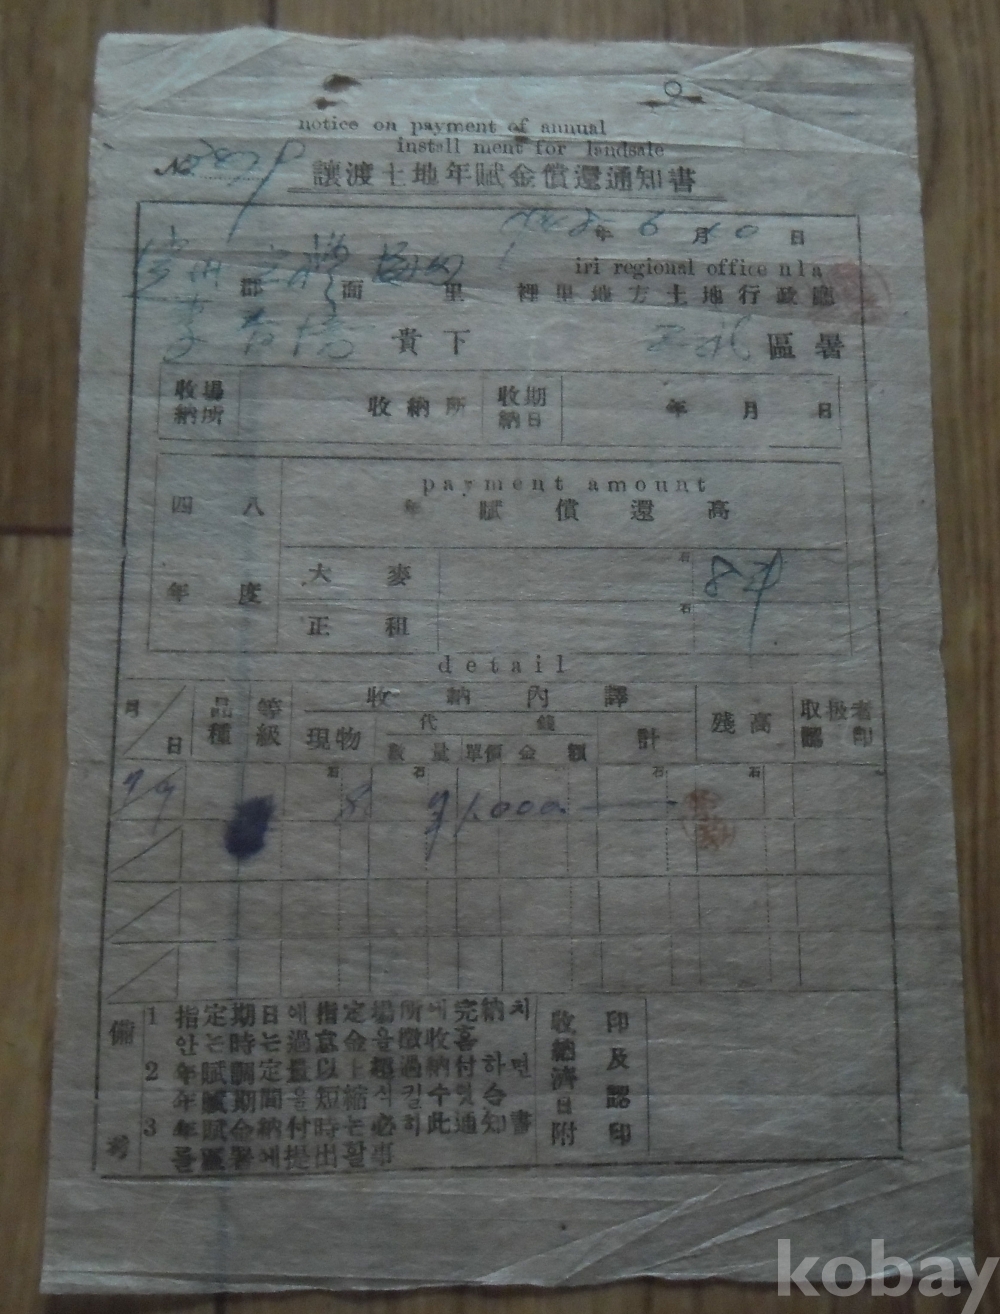 notice on payment of annual
install ment for landsale
No
讓渡土地年賦金償還通知書
年 6 月 10 日
iri regional office nla
郡 面 里 裡里地方土地行政廳
貴下 區署
收納場所 收納所 收納期日 年 月 日
payment amount
四八年度 年賦償還高
大麥 石
正租 石
detail
月/日 品種 等級 收納內譯 残高 取扱者認印
現物 代錢 計
數量 單價 金額
石 石 石 石
9/9 8 1,000
備考
1 指定期日에指定場所에完納치
안는時는過怠金을徵收홈
2 年賦調定量以上超過納付하면
年賦期間을短縮식킬수잇슴
3 年賦金納付時는必히此通知書
를區署에提出할事
收納濟日附印及認印
kobay